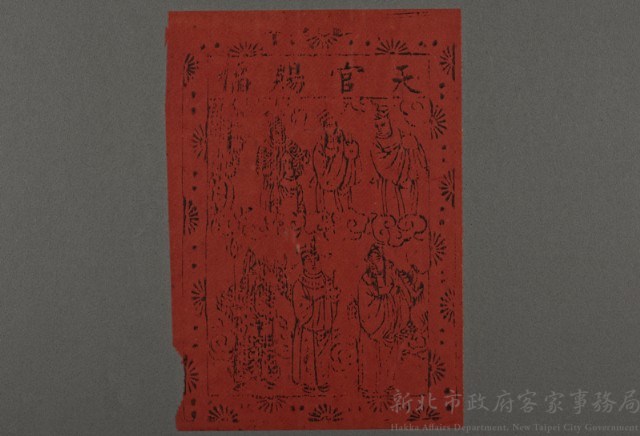 天官賜福
新北市政府客家事務局
Hakka Affairs Department, New Taipei City Government